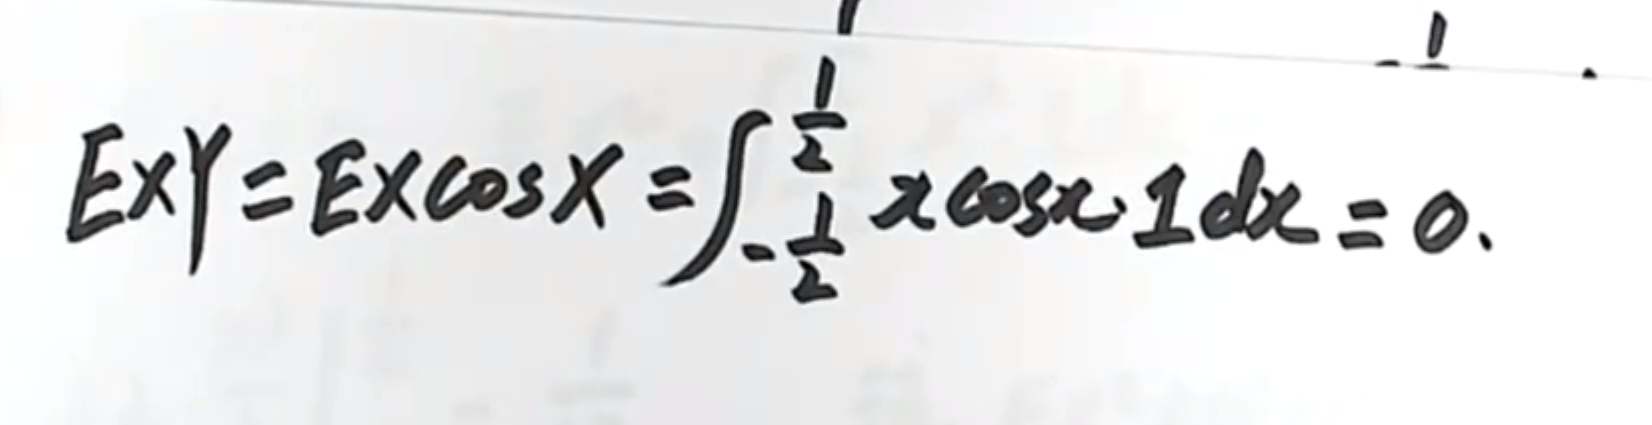 EXY = EXcosX = ∫_{-1/2}^{1/2} x cosx · 1 dx = 0.